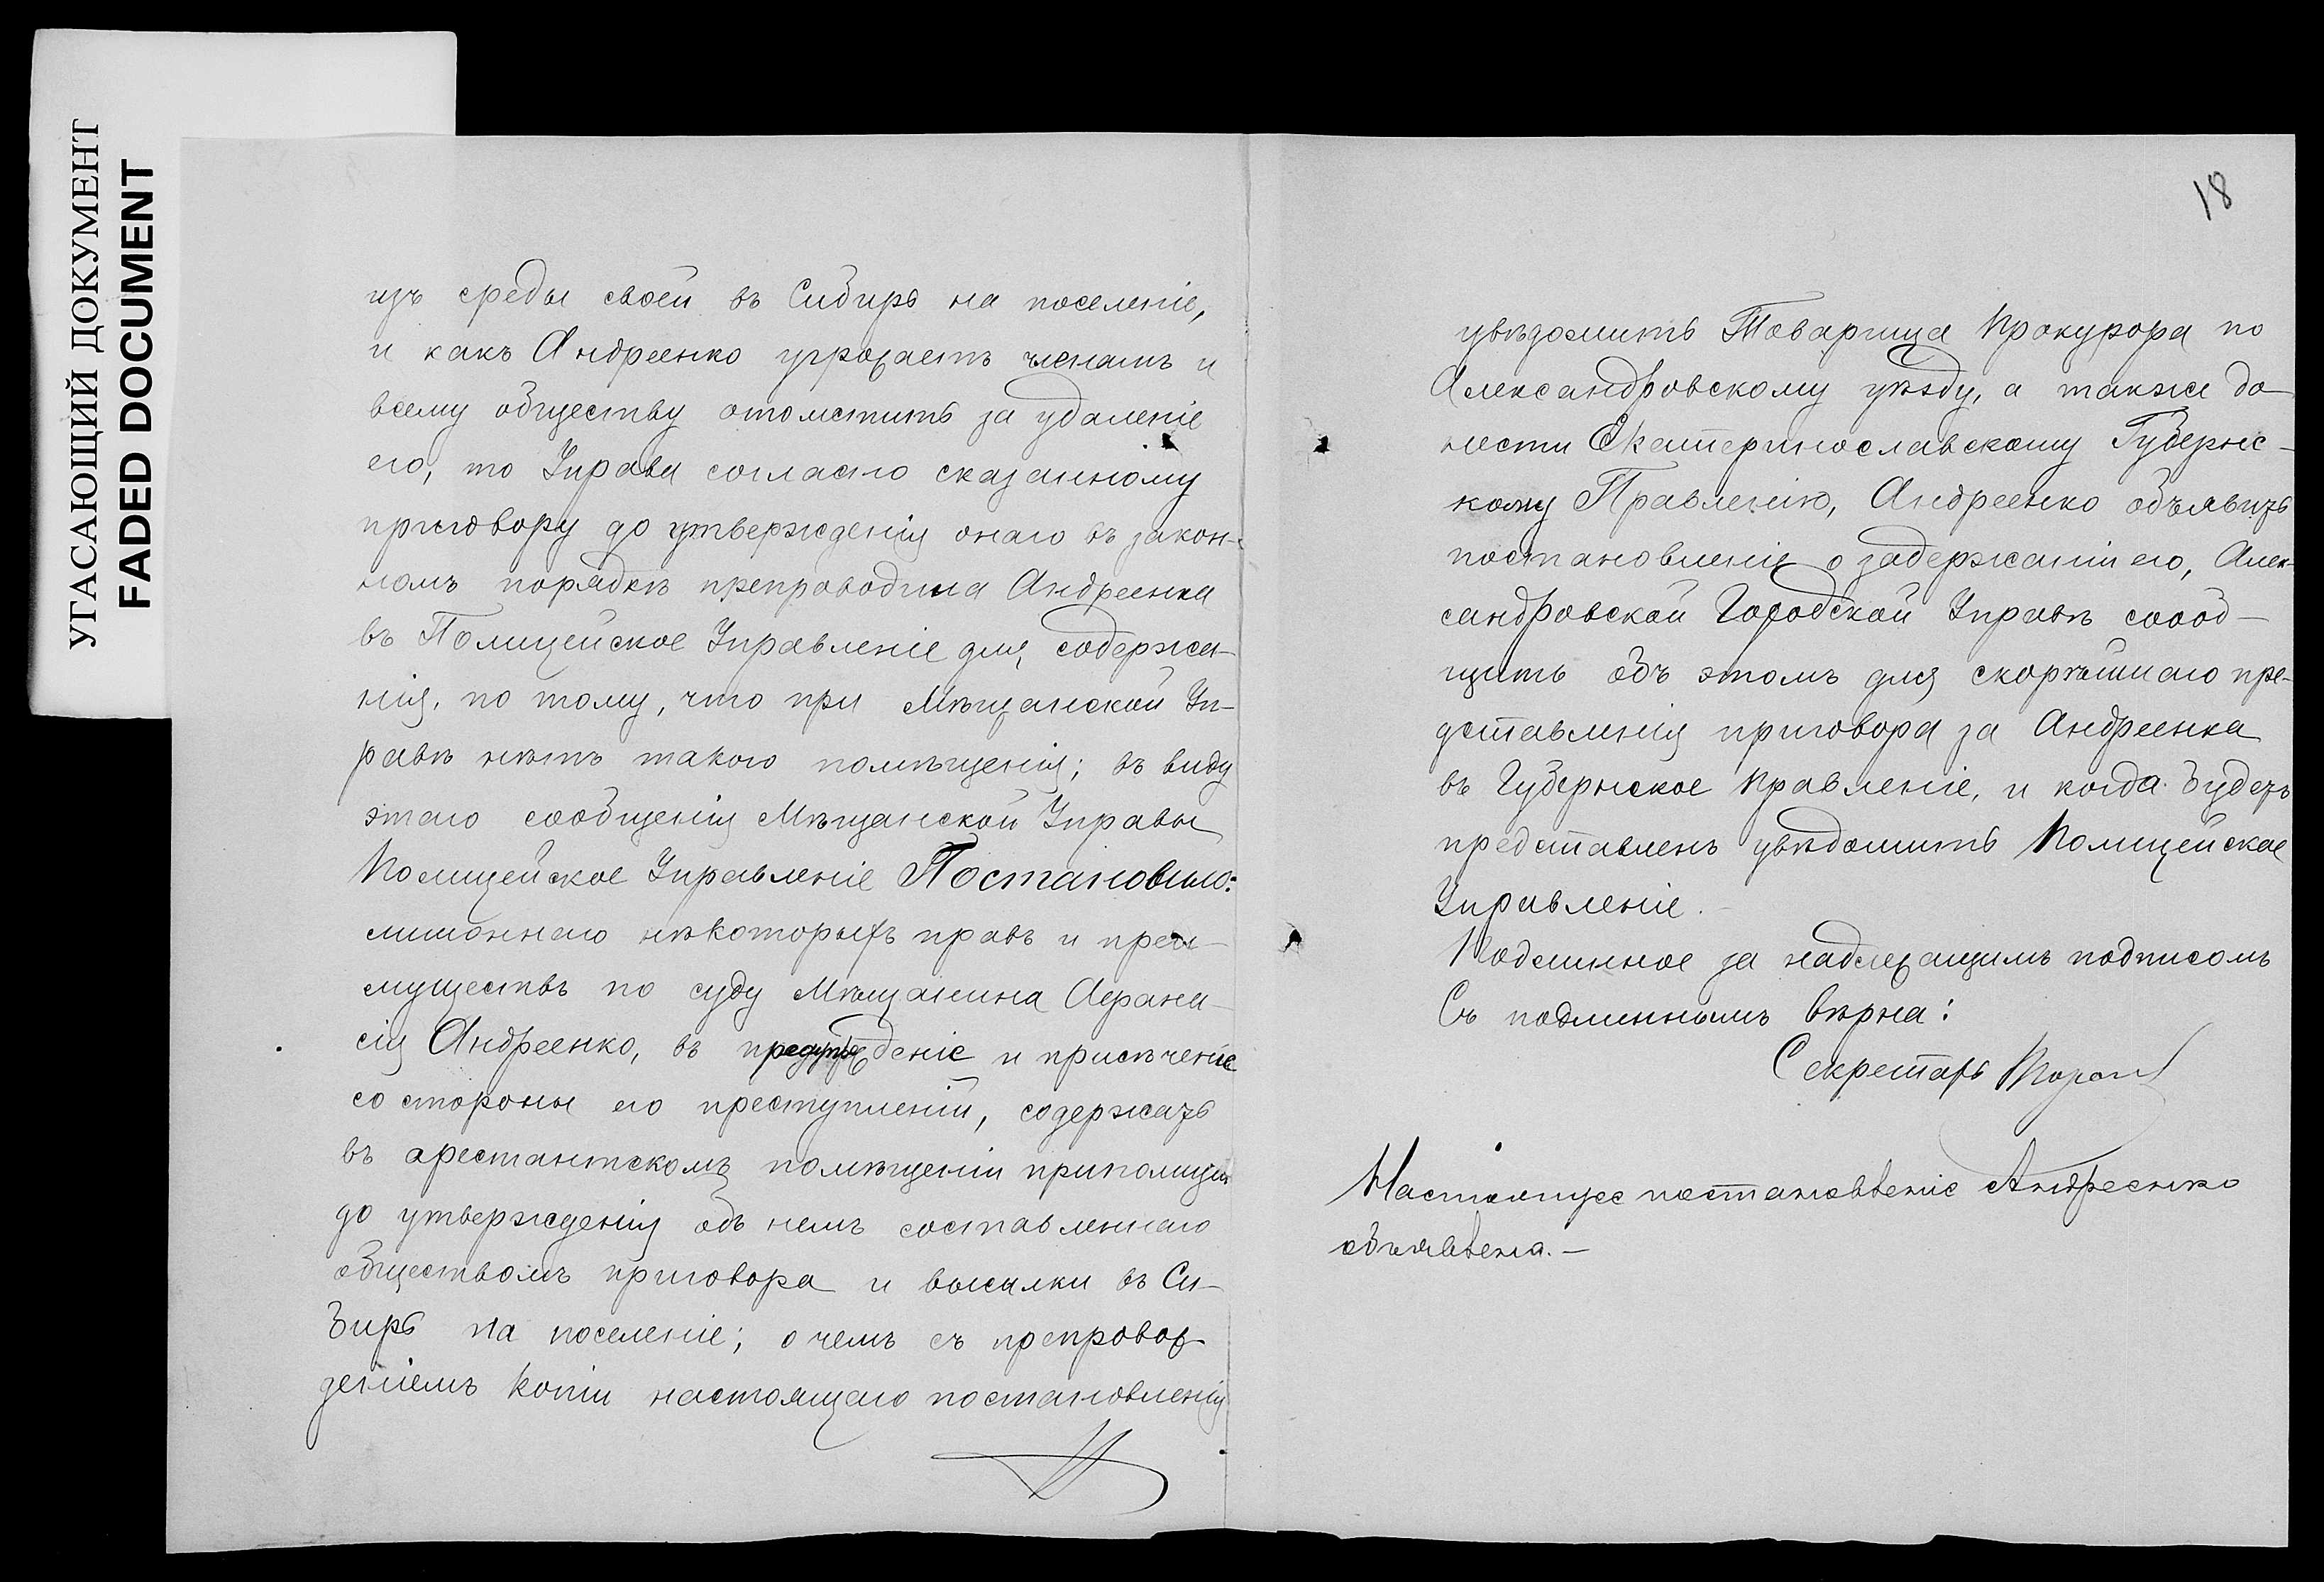 УГАСАЮЩИЙ ДОКУМЕНТ
FADED DOCUMENT
изъ среды своей въ Сибирь на поселеніе,
и какъ Андреенко угрожаетъ членамъ и
всему обществу отомстить за удаленіе
его, то Управа согласно сказанному
приговору до утвержденія онаго въ закон-
номъ порядкѣ препроводила Андреенка
въ Полицейское Управленіе для содержа-
нія, по тому, что при Мѣщанской Уп-
равѣ нѣтъ такого помѣщенія; въ виду
этаго сообщенія Мѣщанской Управы
Полицейское Управленіе Постановило:
лишоннаго нѣкоторыхъ правъ и преи-
муществъ по суду Мѣщанина Афана-
сія Андреенко, въ предупрежденіе и присѣченіе
со стороны его преступленій, содержать
въ арестантскомъ помѣщеніи при полиціи
до утвержденія объ немъ составленнаго
обществомъ приговора и высылки въ Си-
бирь на поселеніе; о чемъ съ препровож-
деніемъ копіи настоящаго постановленія
18
увѣдомить Товарища Прокурора по
Александровскому уѣзду, а также до-
нести Екатеринославскому Губернс-
кому Правленію, Андреенко объявить
постановленіе о задержаніи его, Алек-
сандровской Городской Управѣ сооб-
щить объ этомъ для скорѣйшаго пре-
дставленія приговора за Андреенка
въ Губернское Правленіе, и когда будетъ
представленъ увѣдомить Полицейское
Управленіе.
Подлинное за надлежащимъ подписомъ
Съ подлиннымъ вѣрна:
Секретарь
Настоящее постановленіе Андреенко
объявлена.—